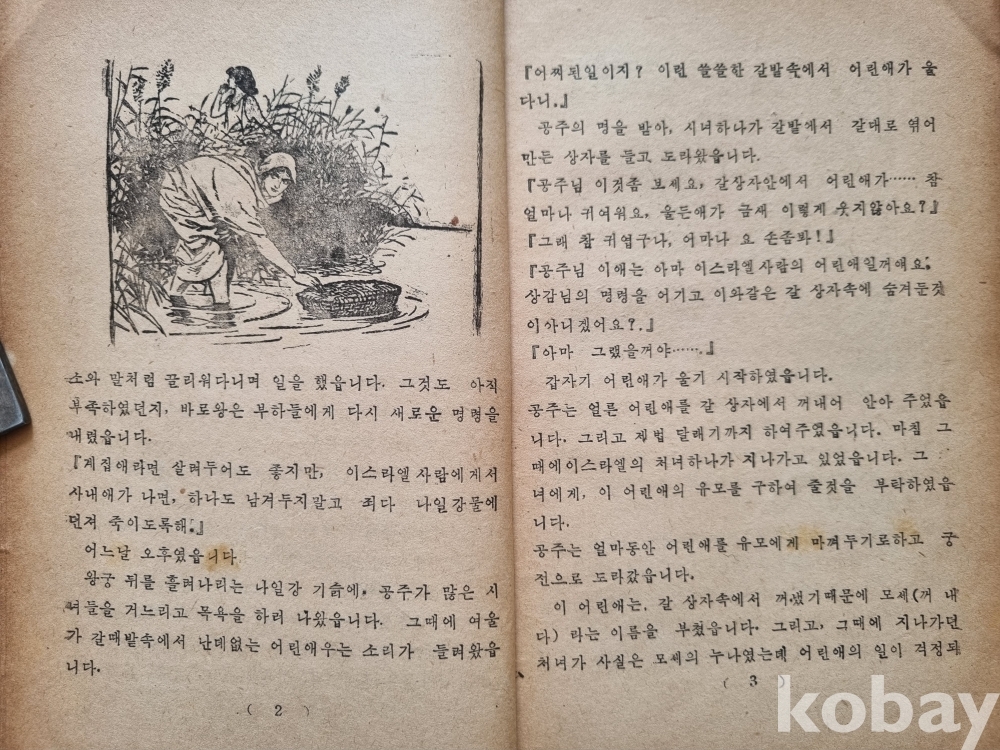 소와 말처럼 끌리워다니며 일을 했읍니다. 그것도 아직
부족하였던지, 바로왕은 부하들에게 다시 새로운 명령을
내렸읍니다.
『게집애라면 살려두어도 좋지만, 이스라엘사람에게서
사내애가 나면, 하나도 남겨두지말고 죄다 나일강물에
던져 죽이도록해.』
어느날 오후였읍니다
왕궁 뒤를 흘러나리는 나일강 기슭에, 공주가 많은 시
녀들을 거느리고 목욕을 하러 나왔읍니다. 그때에 여울
가 갈때밭속에서 난데없는 어린애우는 소리가 들려왔읍
니다.
( 2 )
『어찌된일이지? 이런 쓸쓸한 갈밭속에서 어린애가 울
다니.』
공주의 명을 받아, 시녀하나가 갈밭에서 갈대로 엮어
만든 상자를 들고 도라왔읍니다.
『공주님 이것좀 보세요, 갈상자안에서 어린애가…… 참
얼마나 귀여워요, 울든애가 금새 이렇게 웃지않아요?』
『그래 참 귀엽구나, 어마나 요 손좀봐!』
『공주님 이애는 아마 이스라엘사람의 어린애일꺼애요.
상감님의 명령을 어기고 이와같은 갈 상자속에 숨겨둔것
이아니겠어요?.』
『아마 그랬을꺼야…….』
갑자기 어린애가 울기 시작하였읍니다.
공주는 얼른 어린애를 갈 상자에서 꺼내어 안아 주었읍
니다. 그리고 제법 달래기까지 하여주었읍니다. 마침 그
때에이스라엘의 처녀하나가 지나가고 있었읍니다. 그
녀에게, 이 어린애의 유모를 구하여 줄것을 부탁하였읍
니다.
공주는 얼마동안 어린애를 유모에게 마껴두기로하고 궁
전으로 도라갔읍니다.
이 어린애는, 갈 상자속에서 꺼냈기때문에 모세(꺼 내
다) 라는 이름을 부쳤읍니다. 그리고, 그때에 지나가던
처녀가 사실은 모세의 누나였는데 어린애의 일이 걱정되
( 3 )
kobay